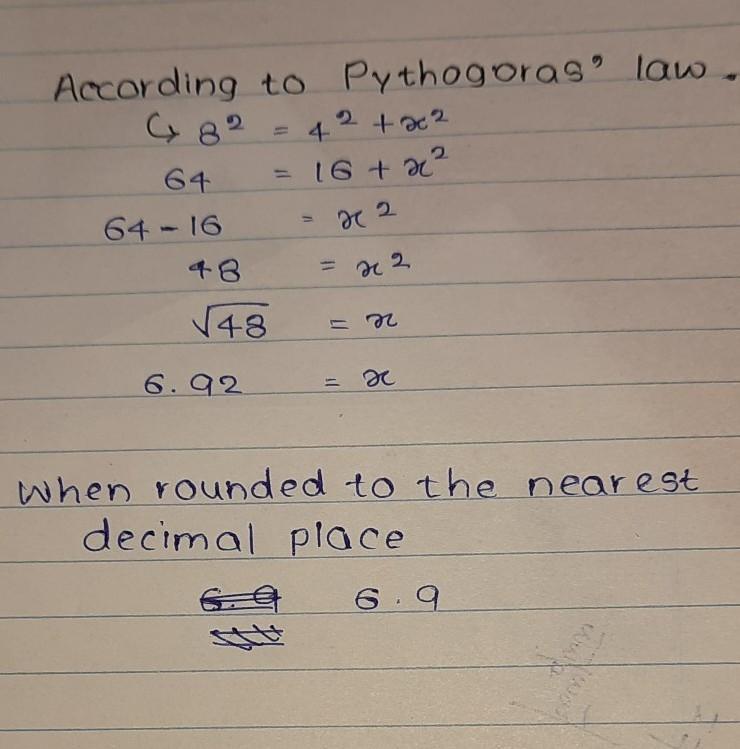 According to Pythogoras' law.
↳ 8² = 4² + x²
64 = 16 + x²
64 - 16 = x²
48 = x²
√48 = x
6.92 = x
When rounded to the nearest
decimal place
6.9 6.9